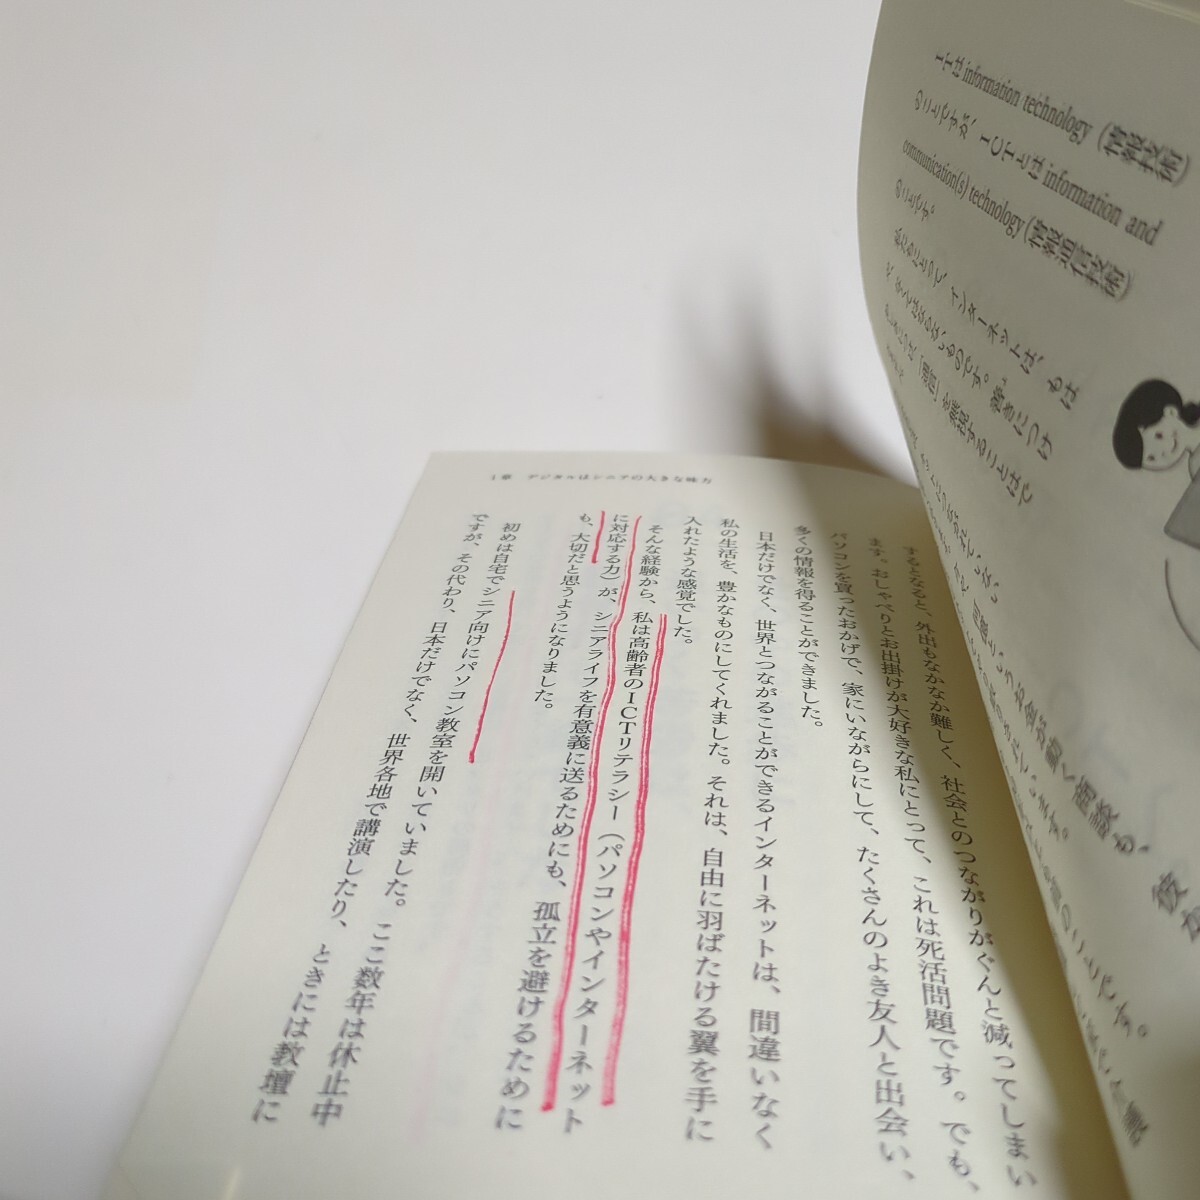 ITはinformation technology(情報技術)
のことですが、ICTとはinformation and
communication(s) technology(情報通信技術)
のことです。
私たちにとって、インターネットは、もは
や、なくてはならないものです。働きにつけ
「通信」を無視することはで
1章 デジタルはシニアの大きな味方
するとなると、外出もなかなか難しく、社会とのつながりがぐんと減ってしまい
ます。おしゃべりとお出掛けが大好きな私にとって、これは死活問題です。でも、
パソコンを買ったおかげで、家にいながらにして、たくさんのよき友人と出会い、
多くの情報を得ることができました。
日本だけでなく、世界とつながることができるインターネットは、間違いなく
私の生活を、豊かなものにしてくれました。それは、自由に羽ばたける翼を手に
入れたような感覚でした。
そんな経験から、私は高齢者のICTリテラシー(パソコンやインターネット
に対応する力)が、シニアライフを有意義に送るためにも、孤立を避けるために
も、大切だと思うようになりました。
初めは自宅でシニア向けにパソコン教室を開いていました。ここ数年は休止中
ですが、その代わり、日本だけでなく、世界各地で講演したり、ときには教壇に